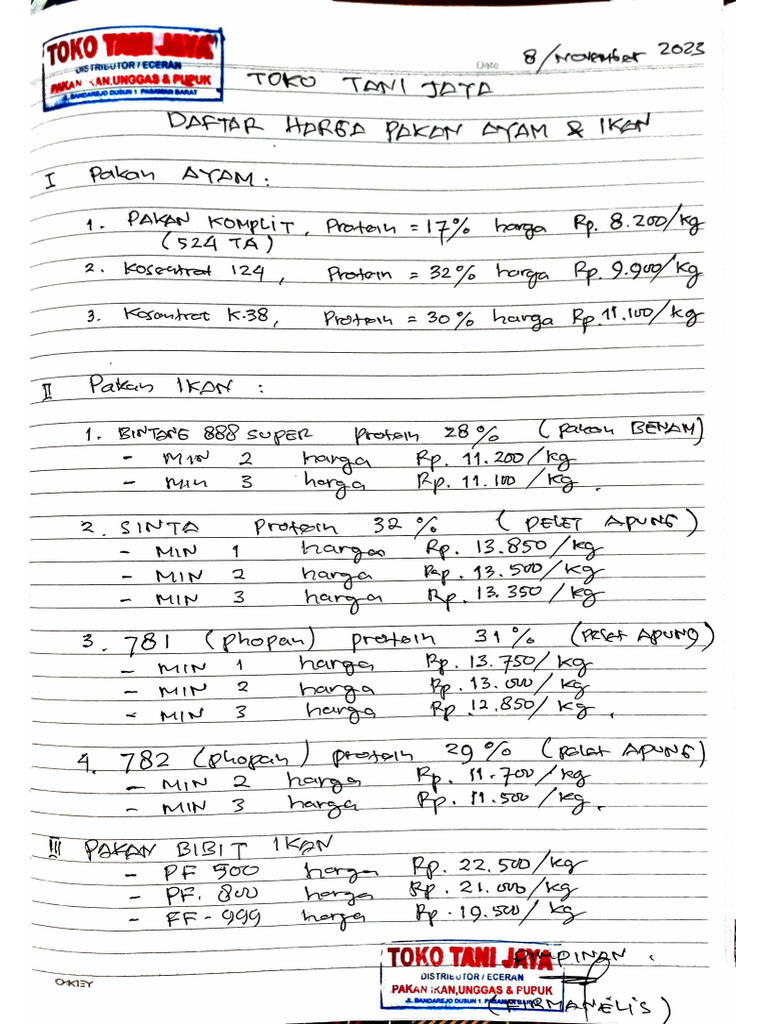 TOKO TANI JAYA
DISTRIBUTOR / ECERAN
PAKAN IKAN, UNGGAS & PUPUK
JL. BANDAREJO DUSUN 1. PASAMAN BARAT
Date 8/November 2023
TOKO TANI JAYA
DAFTAR HARGA PAKAN AYAM & IKAN
I Pakan AYAM :
1. PAKAN KOMPLIT, Protein = 17% harga Rp. 8.200/kg
(524 TA)
2. Kosentrat 124, Protein = 32% harga Rp. 9.900/kg
3. Kosantrat K.38, Protein = 30% harga Rp. 11.100/kg
II Pakan IKAN :
1. BINTANG 888 SUPER protein 28% (pakan BENAM)
- MIN 2 harga Rp. 11.200/kg
- MIN 3 harga Rp. 11.100/kg.
2. SINTA Protein 32% (PELET APUNG)
- MIN 1 harga Rp. 13.850/kg
- MIN 2 harga Rp. 13.500/kg
- MIN 3 harga Rp. 13.350/kg
3. 781 (phopan) protein 31% (PELET APUNG)
- MIN 1 harga Rp. 13.750/kg
- MIN 2 harga Rp. 13.000/kg
- MIN 3 harga Rp. 12.850/kg.
4. 782 (phopan) protein 29% (pelet APUNG)
- MIN 2 harga Rp. 11.700/kg
- MIN 3 harga Rp. 11.500/kg.
III PAKAN BIBIT IKAN
- PF 500 harga Rp. 22.500/kg
- PF. 800 harga Rp. 21.000/kg
- FF-999 harga Rp. 19.500/kg
PIMPINAN.
TOKO TANI JAYA
DISTRIBUTOR / ECERAN
PAKAN IKAN, UNGGAS & PUPUK
JL. BANDAREJO DUSUN 1. PASAMAN BARAT
(FIRMANELIS)
OKEY